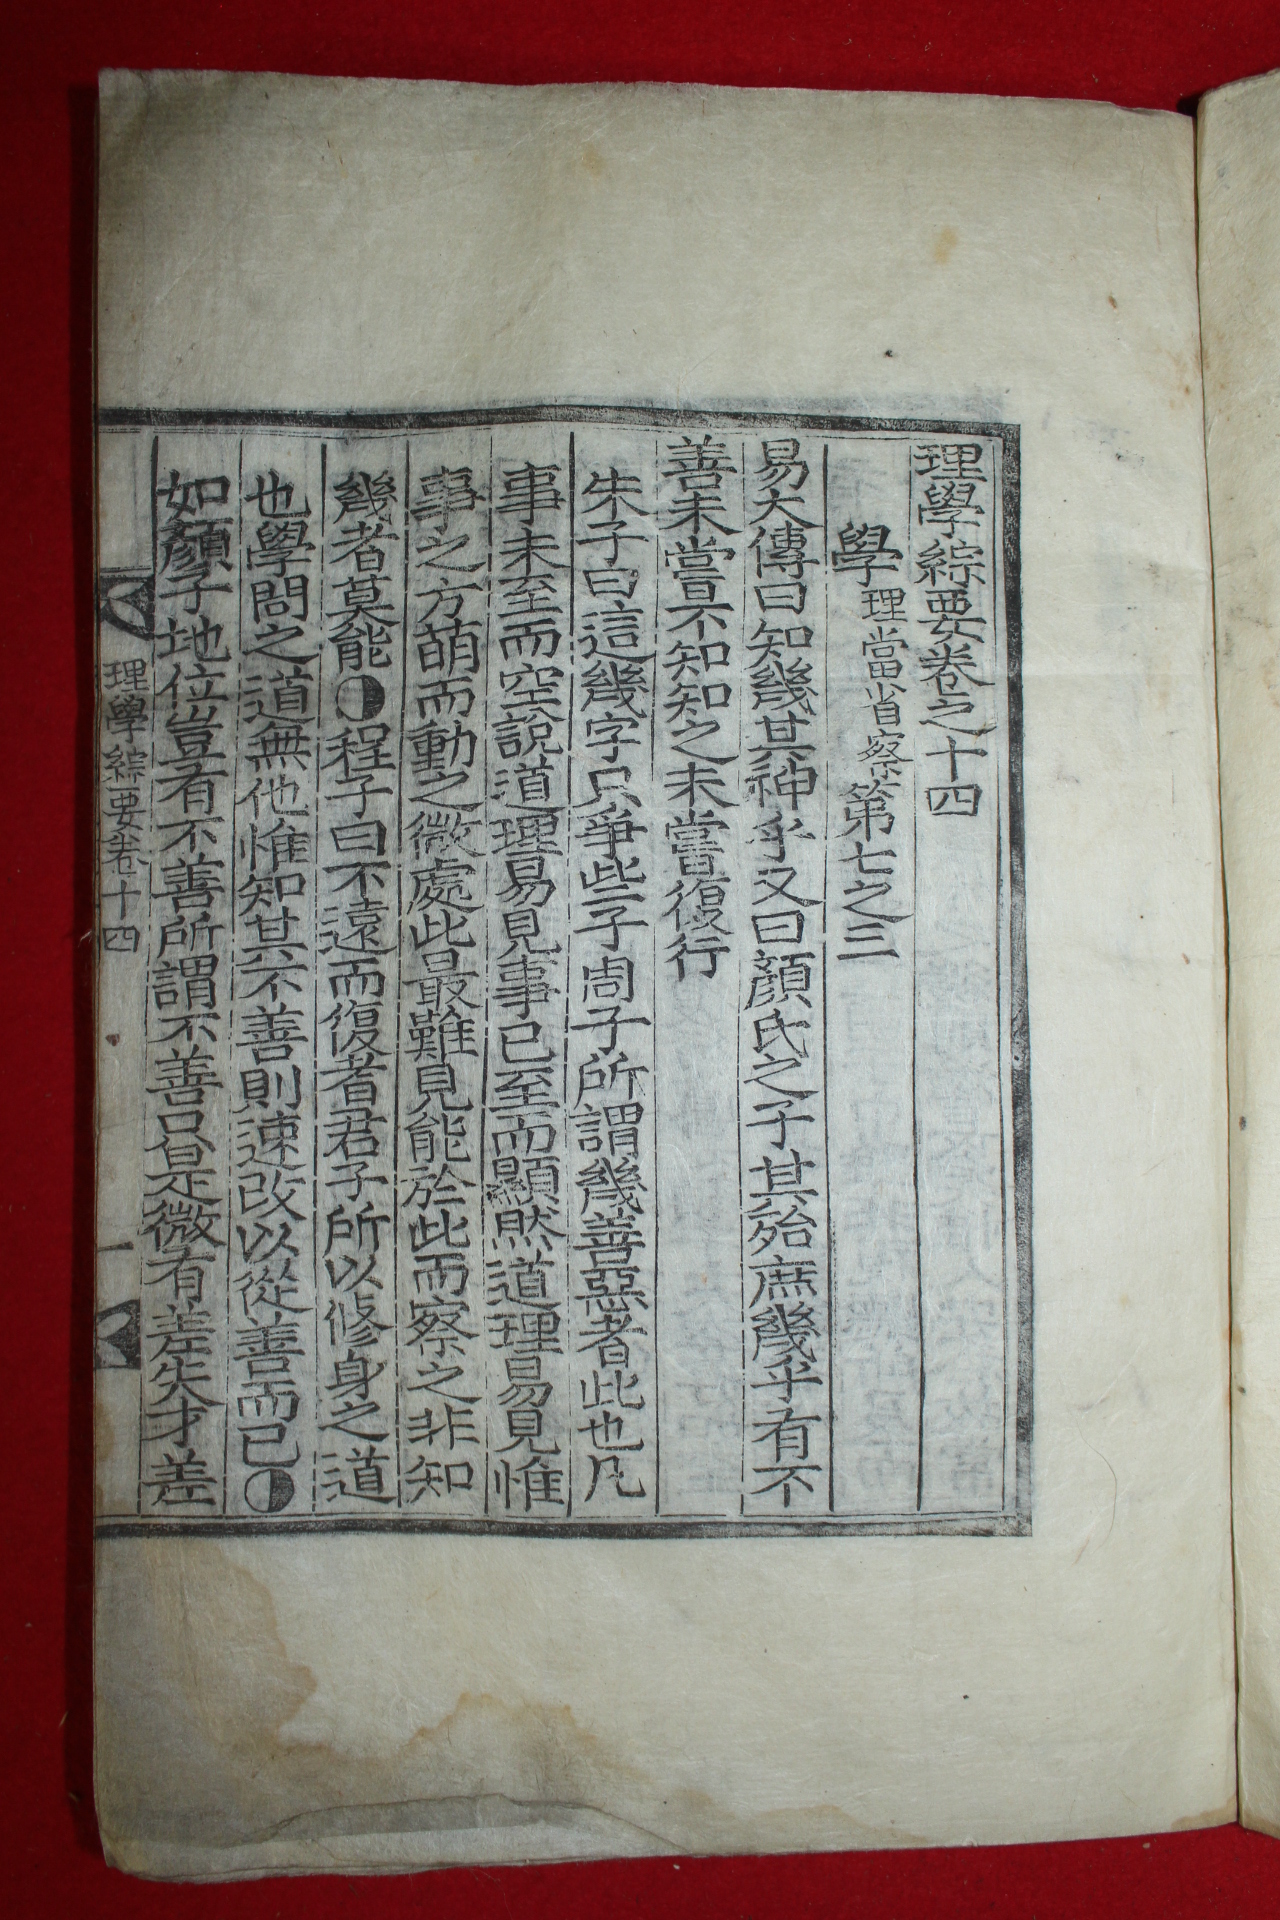 理學綜要卷之十四
學理當省察第七之三
易大傳曰知幾其神乎又曰顏氏之子其殆庶幾乎有不
善未嘗不知知之未嘗復行
朱子曰這幾字只爭些子周子所謂幾善惡者此也凡
事未至而空說道理易見事已至而顯然道理易見惟
事之方萌而動之微處此最難見能於此而察之非知
幾者莫能◑程子曰不遠而復者君子所以修身之道
也學問之道無他惟知其不善則速改以從善而已◑
如顏子地位豈有不善所謂不善只是微有差失才差
理學綜要卷十四 一